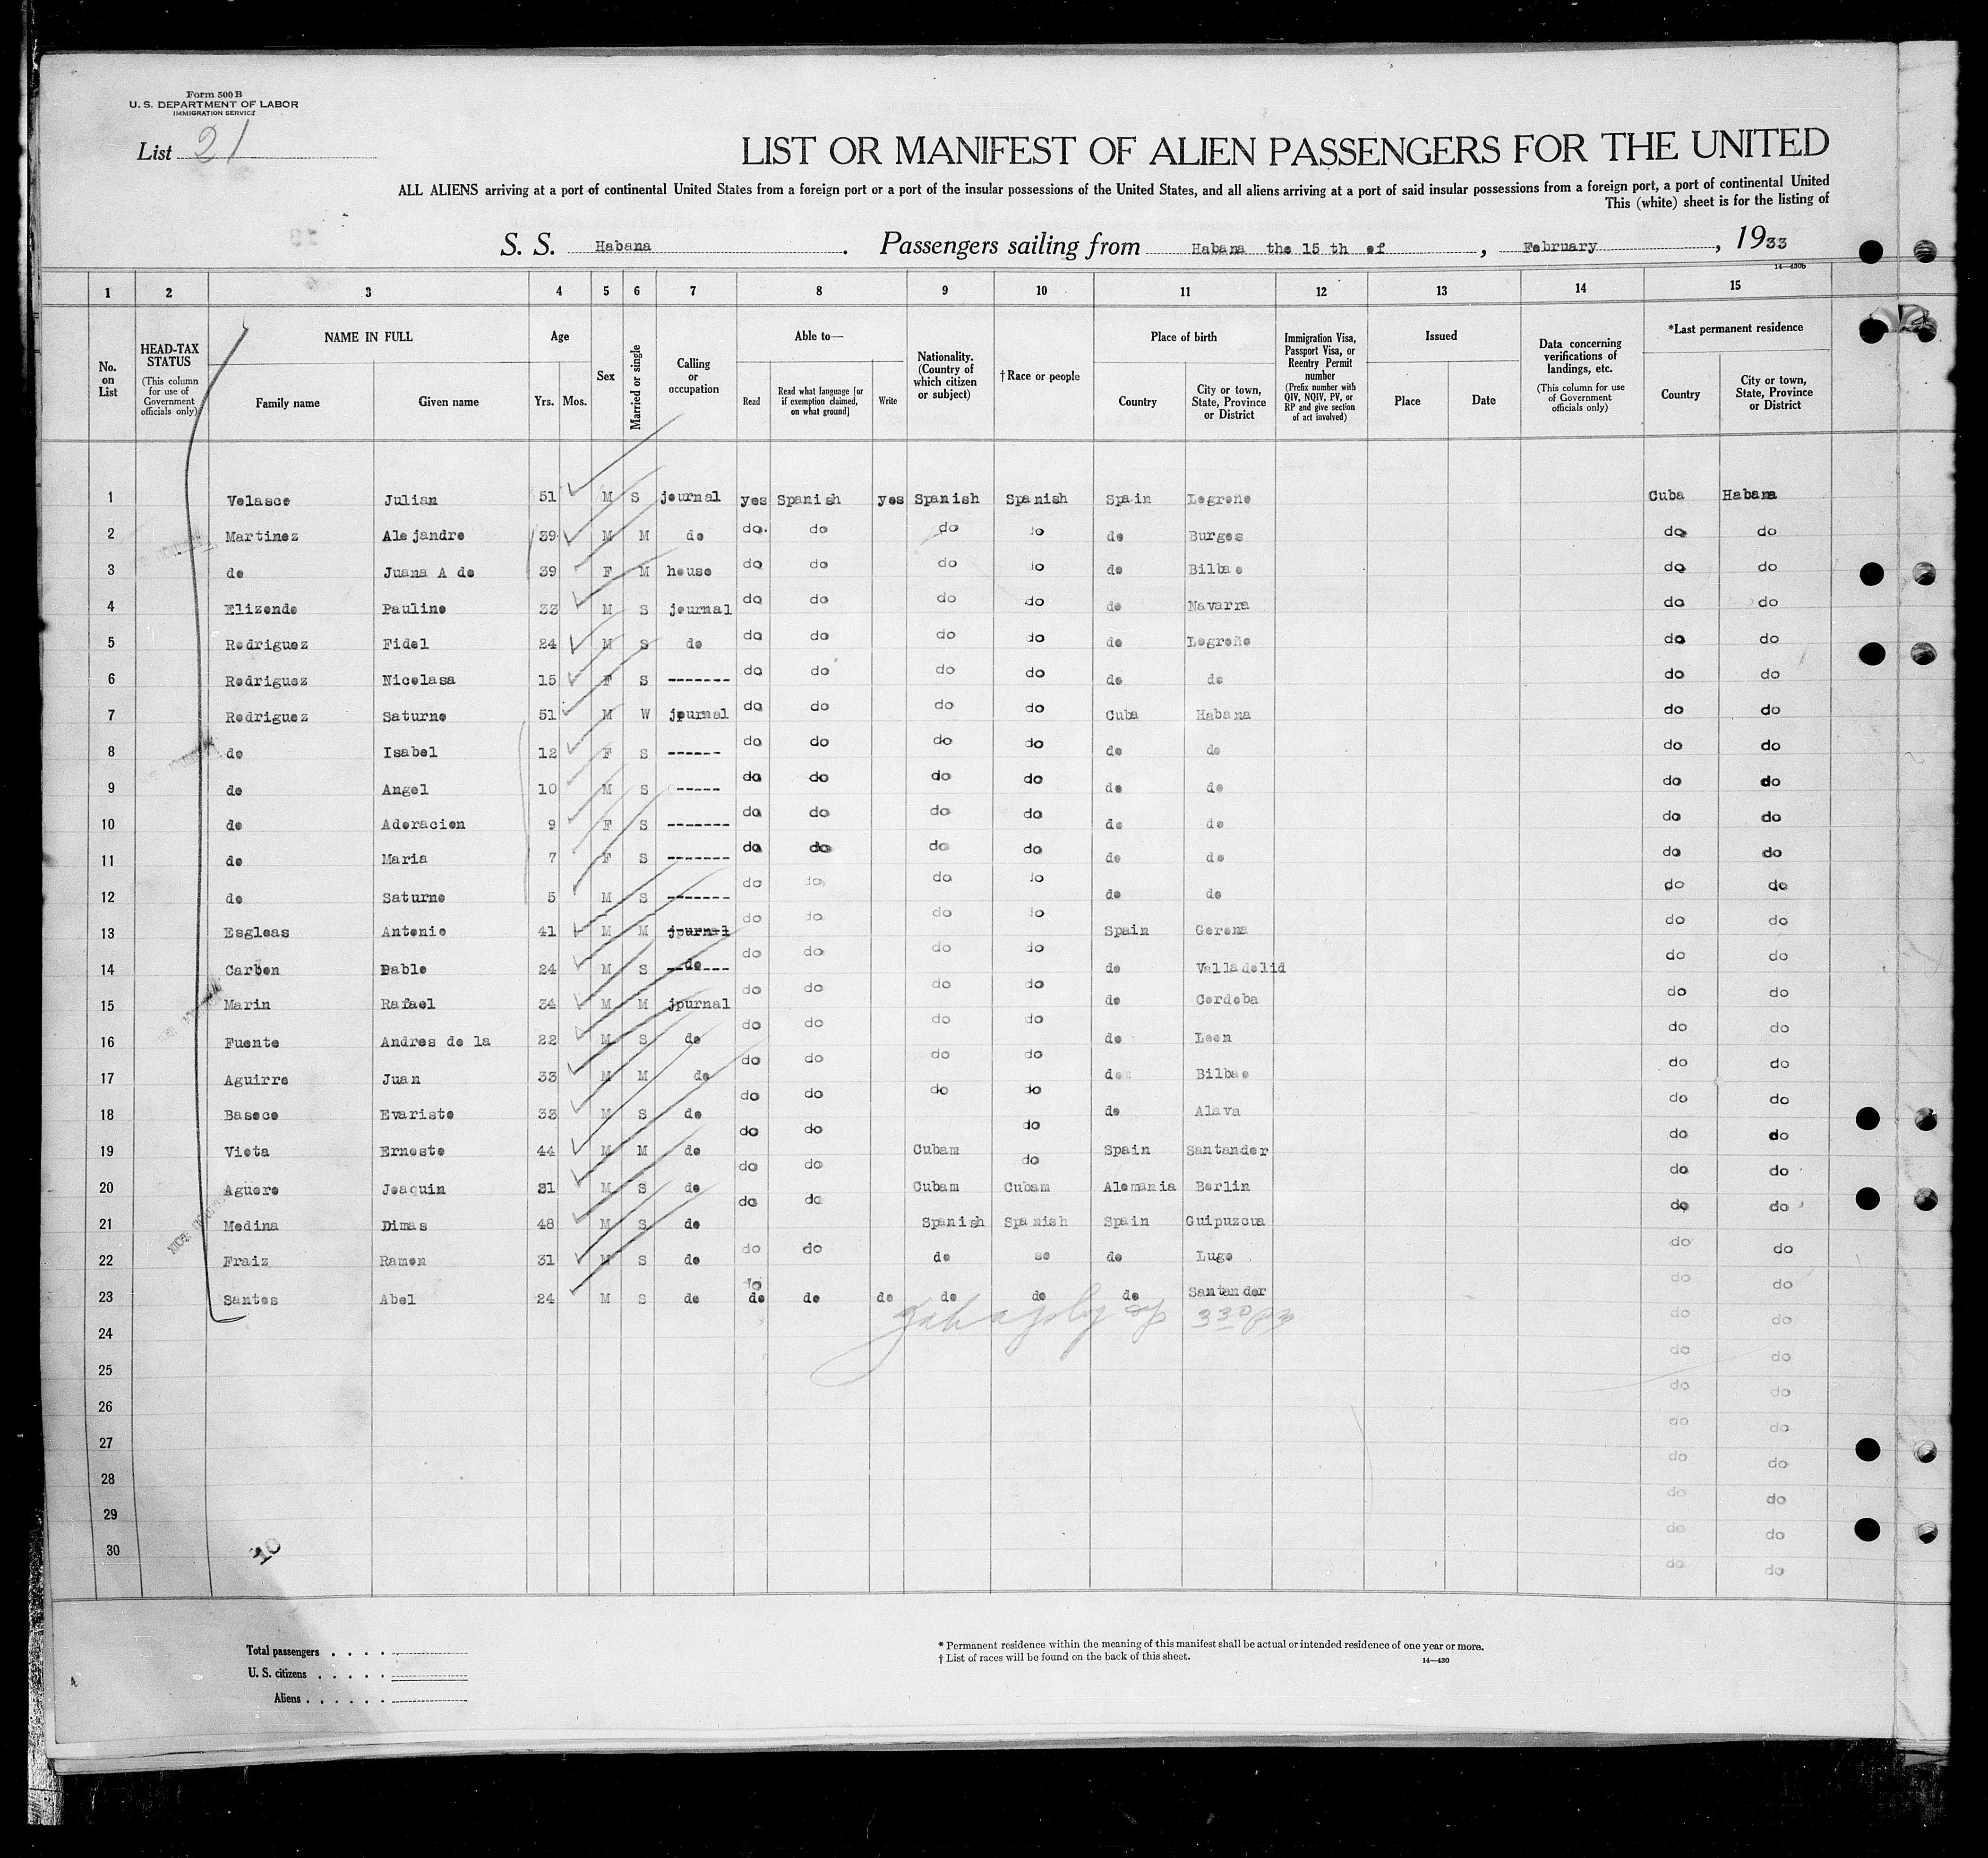 Form 500 B
U. S. DEPARTMENT OF LABOR
IMMIGRATION SERVICE
List 21
LIST OR MANIFEST OF ALIEN PASSENGERS FOR THE UNITED
ALL ALIENS arriving at a port of continental United States from a foreign port or a port of the insular possessions of the United States, and all aliens arriving at a port of said insular possessions from a foreign port, a port of continental United
This (white) sheet is for the listing of
S. S. Habana. Passengers sailing from Habana the 15 th of, February, 1933
14—430b
1 2 3 4 5 6 7 8 9 10 11 12 13 14 15
No. on List
HEAD-TAX STATUS (This column for use of Government officials only)
NAME IN FULL Family name Given name
Age Yrs. Mos.
Sex
Married or single
Calling or occupation
Able to— Read Read what language [or if exemption claimed, on what ground] Write
Nationality. (Country of which citizen or subject)
†Race or people
Place of birth Country City or town, State, Province or District
Immigration Visa, Passport Visa, or Reentry Permit number (Prefix number with QIV, NQIV, PV, or RP and give section of act involved)
Issued Place Date
Data concerning verifications of landings, etc. (This column for use of Government officials only)
*Last permanent residence Country City or town, State, Province or District
1 Velasco Julian 51 M S journal yes Spanish yes Spanish Spanish Spain Logroño Cuba Habana
2 Martinez Alejandro 39 M M do do do do do do Burgos do do
3 do Juana A de 39 F M house do do do do do Bilbao do do
4 Elizondo Paulino 33 M S journal do do do do do Navarra do do
5 Rodriguez Fidel 24 M S do do do do do do Logroño do do
6 Rodriguez Nicolasa 15 F S ------- do do do do do do do do
7 Rodriguez Saturno 51 M W jpurnal do do do do Cuba Habana do do
8 do Isabel 12 F S ------ do do do do do do do do
9 do Angel 10 M S ----- do do do do do do do do
10 do Adoracion 9 F S ------- do do do do do do do do
11 do Maria 7 F S ------- do do do do do do do do
12 do Saturno 5 M S ------- do do do do do do do do
13 Esgleas Antonio 41 M M jpurnal do do do do Spain Gerona do do
14 Carbon Pablo 24 M S do do do do do do Valladolid do do
15 Marin Rafael 34 M M jpurnal do do do do do Cordoba do do
16 Fuente Andres de la 22 M S do do do do do do Leon do do
17 Aguirre Juan 33 M M do do do do do do Bilbao do do
18 Basoco Evaristo 33 M S do do do do do do Alava do do
19 Vieta Ernesto 44 M M do do do Cubam do Spain Santander do do
20 Aguero Joaquin 31 M S do do do Cubam Cubam Alemania Berlin do do
21 Medina Dimas 48 M S do do do Spanish Spanish Spain Guipuzcua do do
22 Fraiz Ramon 31 M S do do do do so do Lugo do do
23 Santos Abel 24 M S do do do do do do do do Santander do do
24 do do
25 do do
26 do do
27 do do
28 do do
29 do do
30 do do
do do
10
Total passengers . . . .
U. S. citizens . . . . .
Aliens . . . . . .
* Permanent residence within the meaning of this manifest shall be actual or intended residence of one year or more.
† List of races will be found on the back of this sheet.
14—430